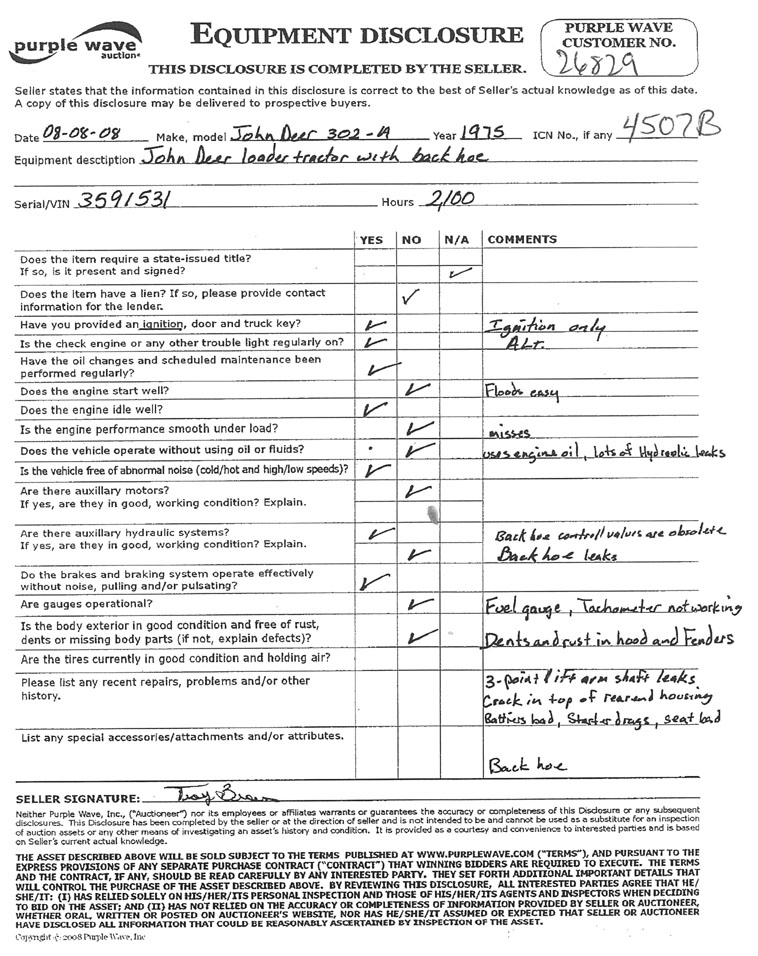 purple wave
auction
EQUIPMENT DISCLOSURE
PURPLE WAVE
CUSTOMER NO.
26829
THIS DISCLOSURE IS COMPLETED BY THE SELLER.
Seller states that the information contained in this disclosure is correct to the best of Seller's actual knowledge as of this date.
A copy of this disclosure may be delivered to prospective buyers.
Date 08-08-08 Make, model John Deer 302-A Year 1975 ICN No., if any 4507B
Equipment desctiption John Deer loader tractor with back hoe
Serial/VIN 359153/ Hours 2100
YES NO N/A COMMENTS
Does the item require a state-issued title?
If so, is it present and signed? ✓
Does the item have a lien? If so, please provide contact
information for the lender. ✓
Have you provided an ignition, door and truck key? ✓ Ignition only
Is the check engine or any other trouble light regularly on? ✓ ALT.
Have the oil changes and scheduled maintenance been
performed regularly? ✓
Does the engine start well? ✓ Floods easy
Does the engine idle well? ✓
Is the engine performance smooth under load? ✓ misses
Does the vehicle operate without using oil or fluids? ✓ uses engine oil, lots of Hydraolic leaks
Is the vehicle free of abnormal noise (cold/hot and high/low speeds)? ✓
Are there auxillary motors? ✓
If yes, are they in good, working condition? Explain.
Are there auxillary hydraulic systems? ✓ Back hoe controll values are obsolete
If yes, are they in good, working condition? Explain. ✓ Back hoe leaks
Do the brakes and braking system operate effectively
without noise, pulling and/or pulsating? ✓
Are gauges operational? ✓ Fuel gauge, Tachometer not working
Is the body exterior in good condition and free of rust,
dents or missing body parts (if not, explain defects)? ✓ Dents and rust in hood and Fenders
Are the tires currently in good condition and holding air?
Please list any recent repairs, problems and/or other
history.
3-point lift arm shaft leaks
Crack in top of rear end housing
Battiers bad, Starter drags, seat bad
List any special accessories/attachments and/or attributes.
Back hoe
SELLER SIGNATURE: Troy Brown
Neither Purple Wave, Inc., ("Auctioneer") nor its employees or affiliates warrants or guarantees the accuracy or completeness of this Disclosure or any subsequent
disclosures. This Disclosure has been completed by the seller or at the direction of seller and is not intended to be and cannot be used as a substitute for an inspection
of auction assets or any other means of investigating an asset's history and condition. It is provided as a courtesy and convenience to interested parties and is based
on Seller's current actual knowledge.
THE ASSET DESCRIBED ABOVE WILL BE SOLD SUBJECT TO THE TERMS PUBLISHED AT WWW.PURPLEWAVE.COM ("TERMS"), AND PURSUANT TO THE
EXPRESS PROVISIONS OF ANY SEPARATE PURCHASE CONTRACT ("CONTRACT") THAT WINNING BIDDERS ARE REQUIRED TO EXECUTE. THE TERMS
AND THE CONTRACT, IF ANY, SHOULD BE READ CAREFULLY BY ANY INTERESTED PARTY. THEY SET FORTH ADDITIONAL IMPORTANT DETAILS THAT
WILL CONTROL THE PURCHASE OF THE ASSET DESCRIBED ABOVE. BY REVIEWING THIS DISCLOSURE, ALL INTERESTED PARTIES AGREE THAT HE/
SHE/IT: (I) HAS RELIED SOLELY ON HIS/HER/ITS PERSONAL INSPECTION AND THOSE OF HIS/HER/ITS AGENTS AND INSPECTORS WHEN DECIDING
TO BID ON THE ASSET; AND (II) HAS NOT RELIED ON THE ACCURACY OR COMPLETENESS OF INFORMATION PROVIDED BY SELLER OR AUCTIONEER,
WHETHER ORAL, WRITTEN OR POSTED ON AUCTIONEER'S WEBSITE, NOR HAS HE/SHE/IT ASSUMED OR EXPECTED THAT SELLER OR AUCTIONEER
HAVE DISCLOSED ALL INFORMATION THAT COULD BE REASONABLY ASCERTAINED BY INSPECTION OF THE ASSET.
Copyright © 2008 Purple Wave, Inc